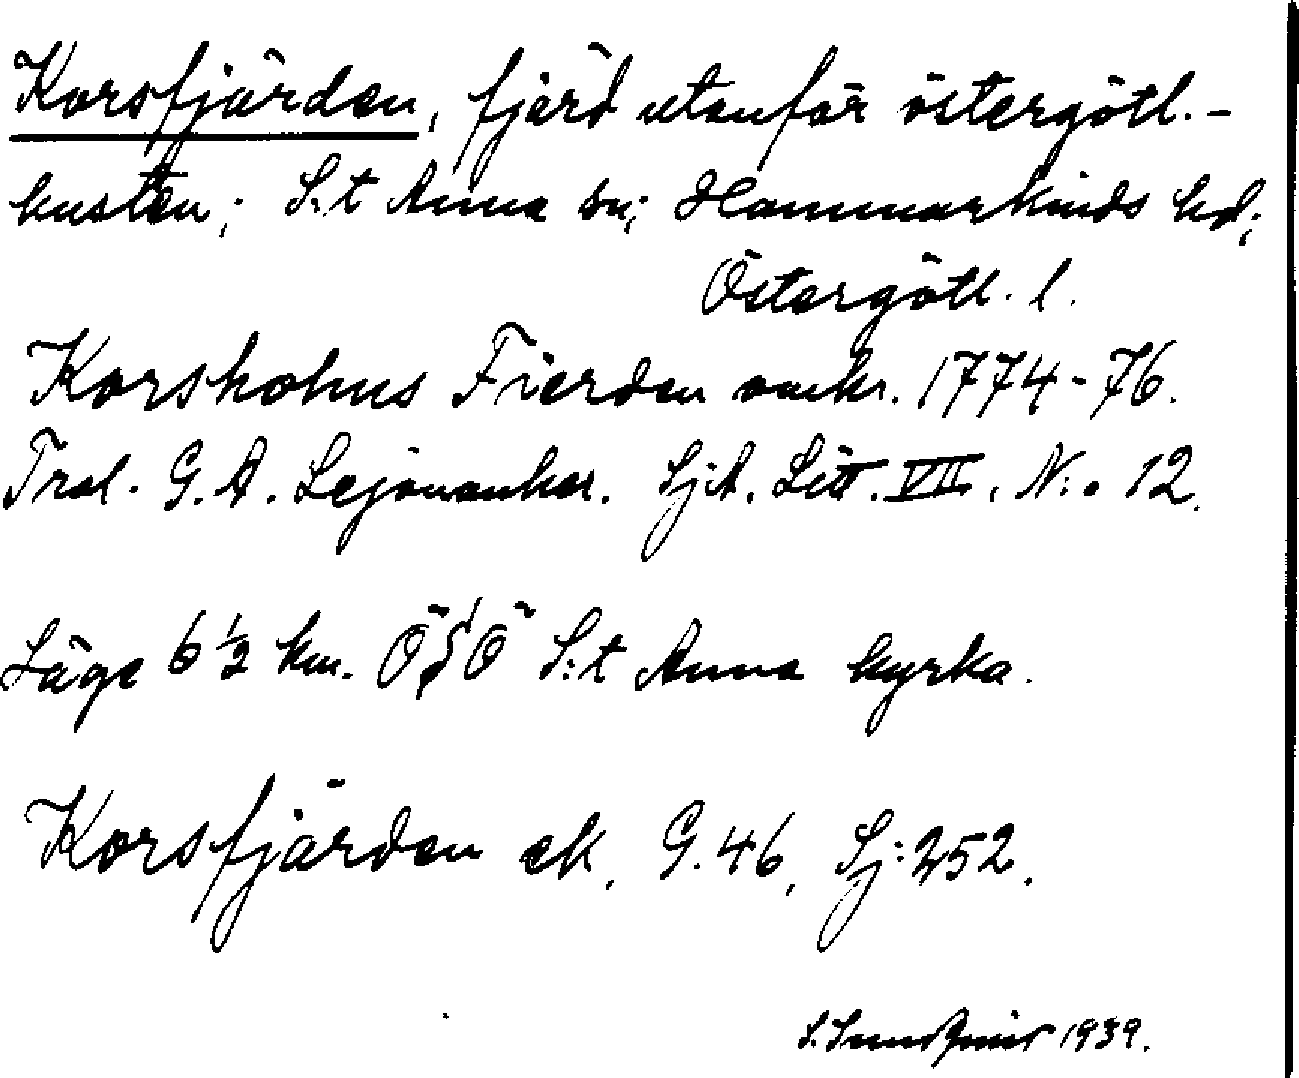 Korsfjärden, fjärd utanför östergötl.-
kusten; S:t Anna sn; Hammarkinds hd;
Östergötl. l.
Korsholms Fierden omkr. 1774-76.
Tral. G. A. Lejonankar. Sj:A. Litt. VII, N:o 12.
Läge 6 1/2 km. ÖSÖ S:t Anna kyrka.
Korsfjärden ek. G. 46, Sj: 252.
S. 1939.